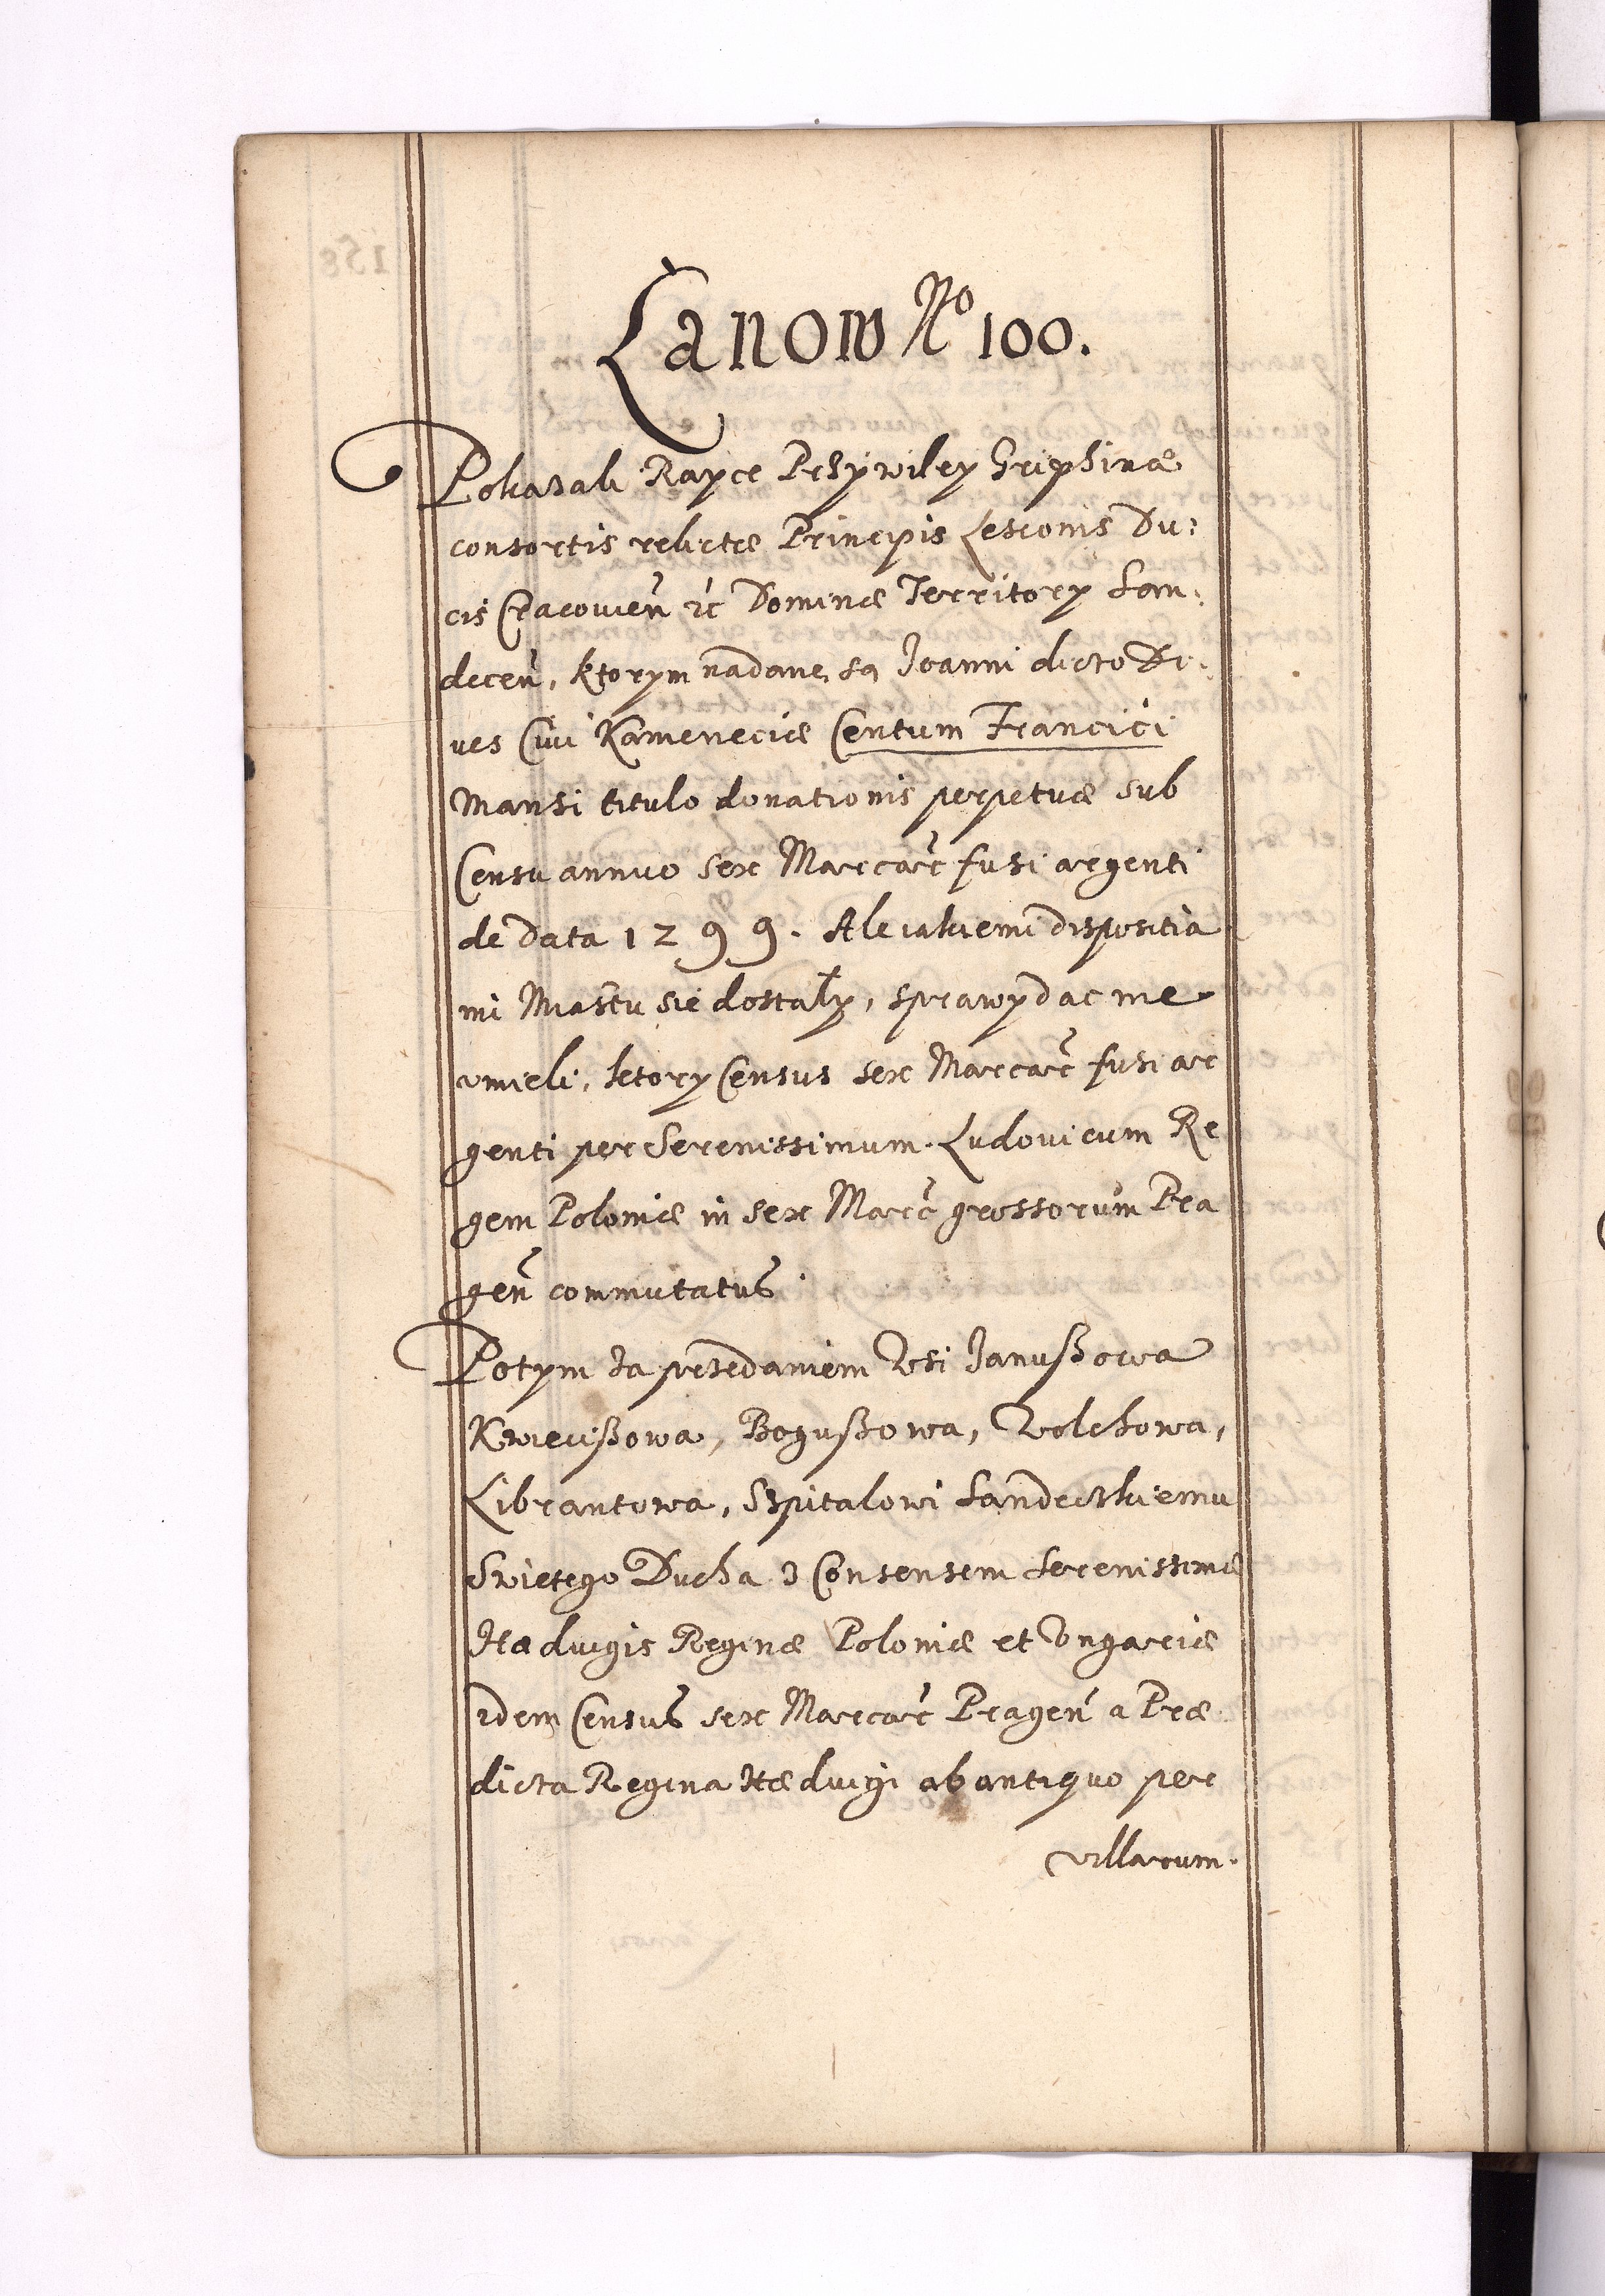 Łanow No 100.
Pokazali Rayce Przywiley Griphinæ
consortis relictæ Principis Lesconis Du:
cis Cracouień etc Dominæ Territory San:
deceń, ktorym nadane są Joanni dicto Di:
ues Ciui Kameneciæ Centum Francici
Mansi titulo donationis perpetuæ sub
Censu annuo sex Marcar̃ fusi argenti
de data 1299. Ale iakiemi dispositia
mi Miastu sie dostały, sprawy dac nie
vmieli, ktory Census sex Marcar̃ fusi ar
genti per Serenissimum Ludouicum Re
gem Poloniæ in sex Marc̃ grossorum Pra
geń commutatus.
Potym za przedaniem Wsi Janußowa
Kwiecißowa, Bogußowa, Wolchowa,
Librantowa, Szpitalowi Sandeczkiemu
Swietego Ducha z Consensem Serenissimæ
Hæduigis Reginæ Poloniæ et Vngariæ
idem Census sex Marcar̃ Prageń a Præ
dicta Regina Hæduigi ab antiquo per
villarum.
158